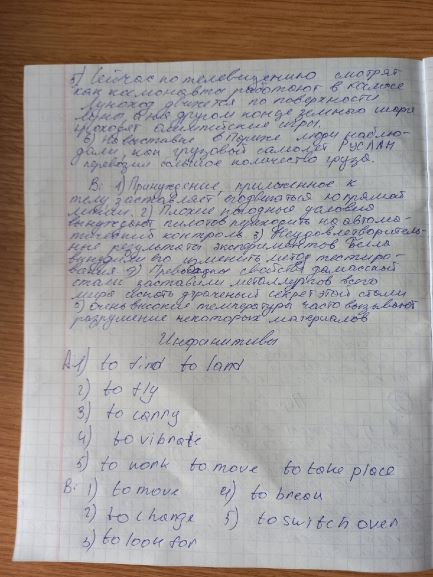 5) Сейчас по телевидению смотрят
как космонавты работают в космосе
Луноход движется по поверхности
луны, а на другом конце земного шара
проходят олимпийские игры.
6) На выставке в Париже люди наблю-
дали, как грузовой самолет РУСЛАН
перевозил большое количество груза.
В: 1) Принуждение, приложенное к
телу заставляет двигаться по прямой
линии. 2) Плохие погодные условия
вынуждают пилотов приходить на автома-
тический контроль 3) Неудовлетворитель-
ные результаты экспериментов Белла
вынудили его изменить метод тестиро-
вания 4) свойства дамасской
стали заставили металлургов всего
мира искать утраченный секрет этой стали
5) Очень высокие температуры часто вызывают
разрушение некоторых материалов
Инфинитивы
A 1) to find to land
2) to fly
3) to carry
4) to vibrate
5) to work to move to take place
B: 1) to move 4) to break
2) to change 5) to switch over
3) to look for